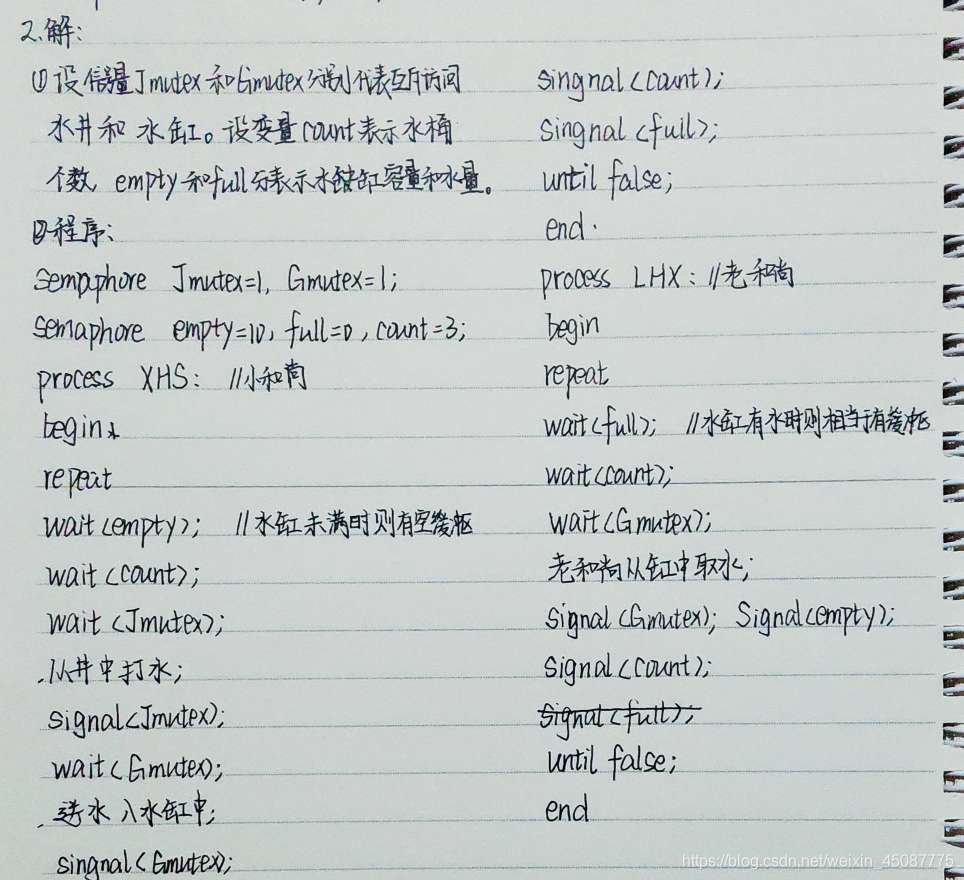 2.解:
①设信号量Jmutex和Gmutex分别代表互斥访问
水井和水缸。设变量count表示水桶
个数, empty和full分表示水缸容量和水量。
②程序:
Semaphore Jmutex=1, Gmutex=1;
Semaphore empty=10, full=0, count=3;
process XHS: //小和尚
begin
repeat
wait(empty); //水缸未满时则有空缓冲区
wait(count);
wait(Jmutex);
从井中打水;
signal(Jmutex);
wait(Gmutex);
送水入水缸中;
singnal(Gmutex);
singnal(count);
singnal(full);
until false;
end.
process LHX: //老和尚
begin
repeat
wait(full); //水缸有水时则相当于有缓冲区
wait(count);
wait(Gmutex);
老和尚从缸中取水;
Signal(Gmutex); Signal(empty);
Signal(count);
Signal(full);
until false;
end
https://blog.csdn.net/weixin_45087775